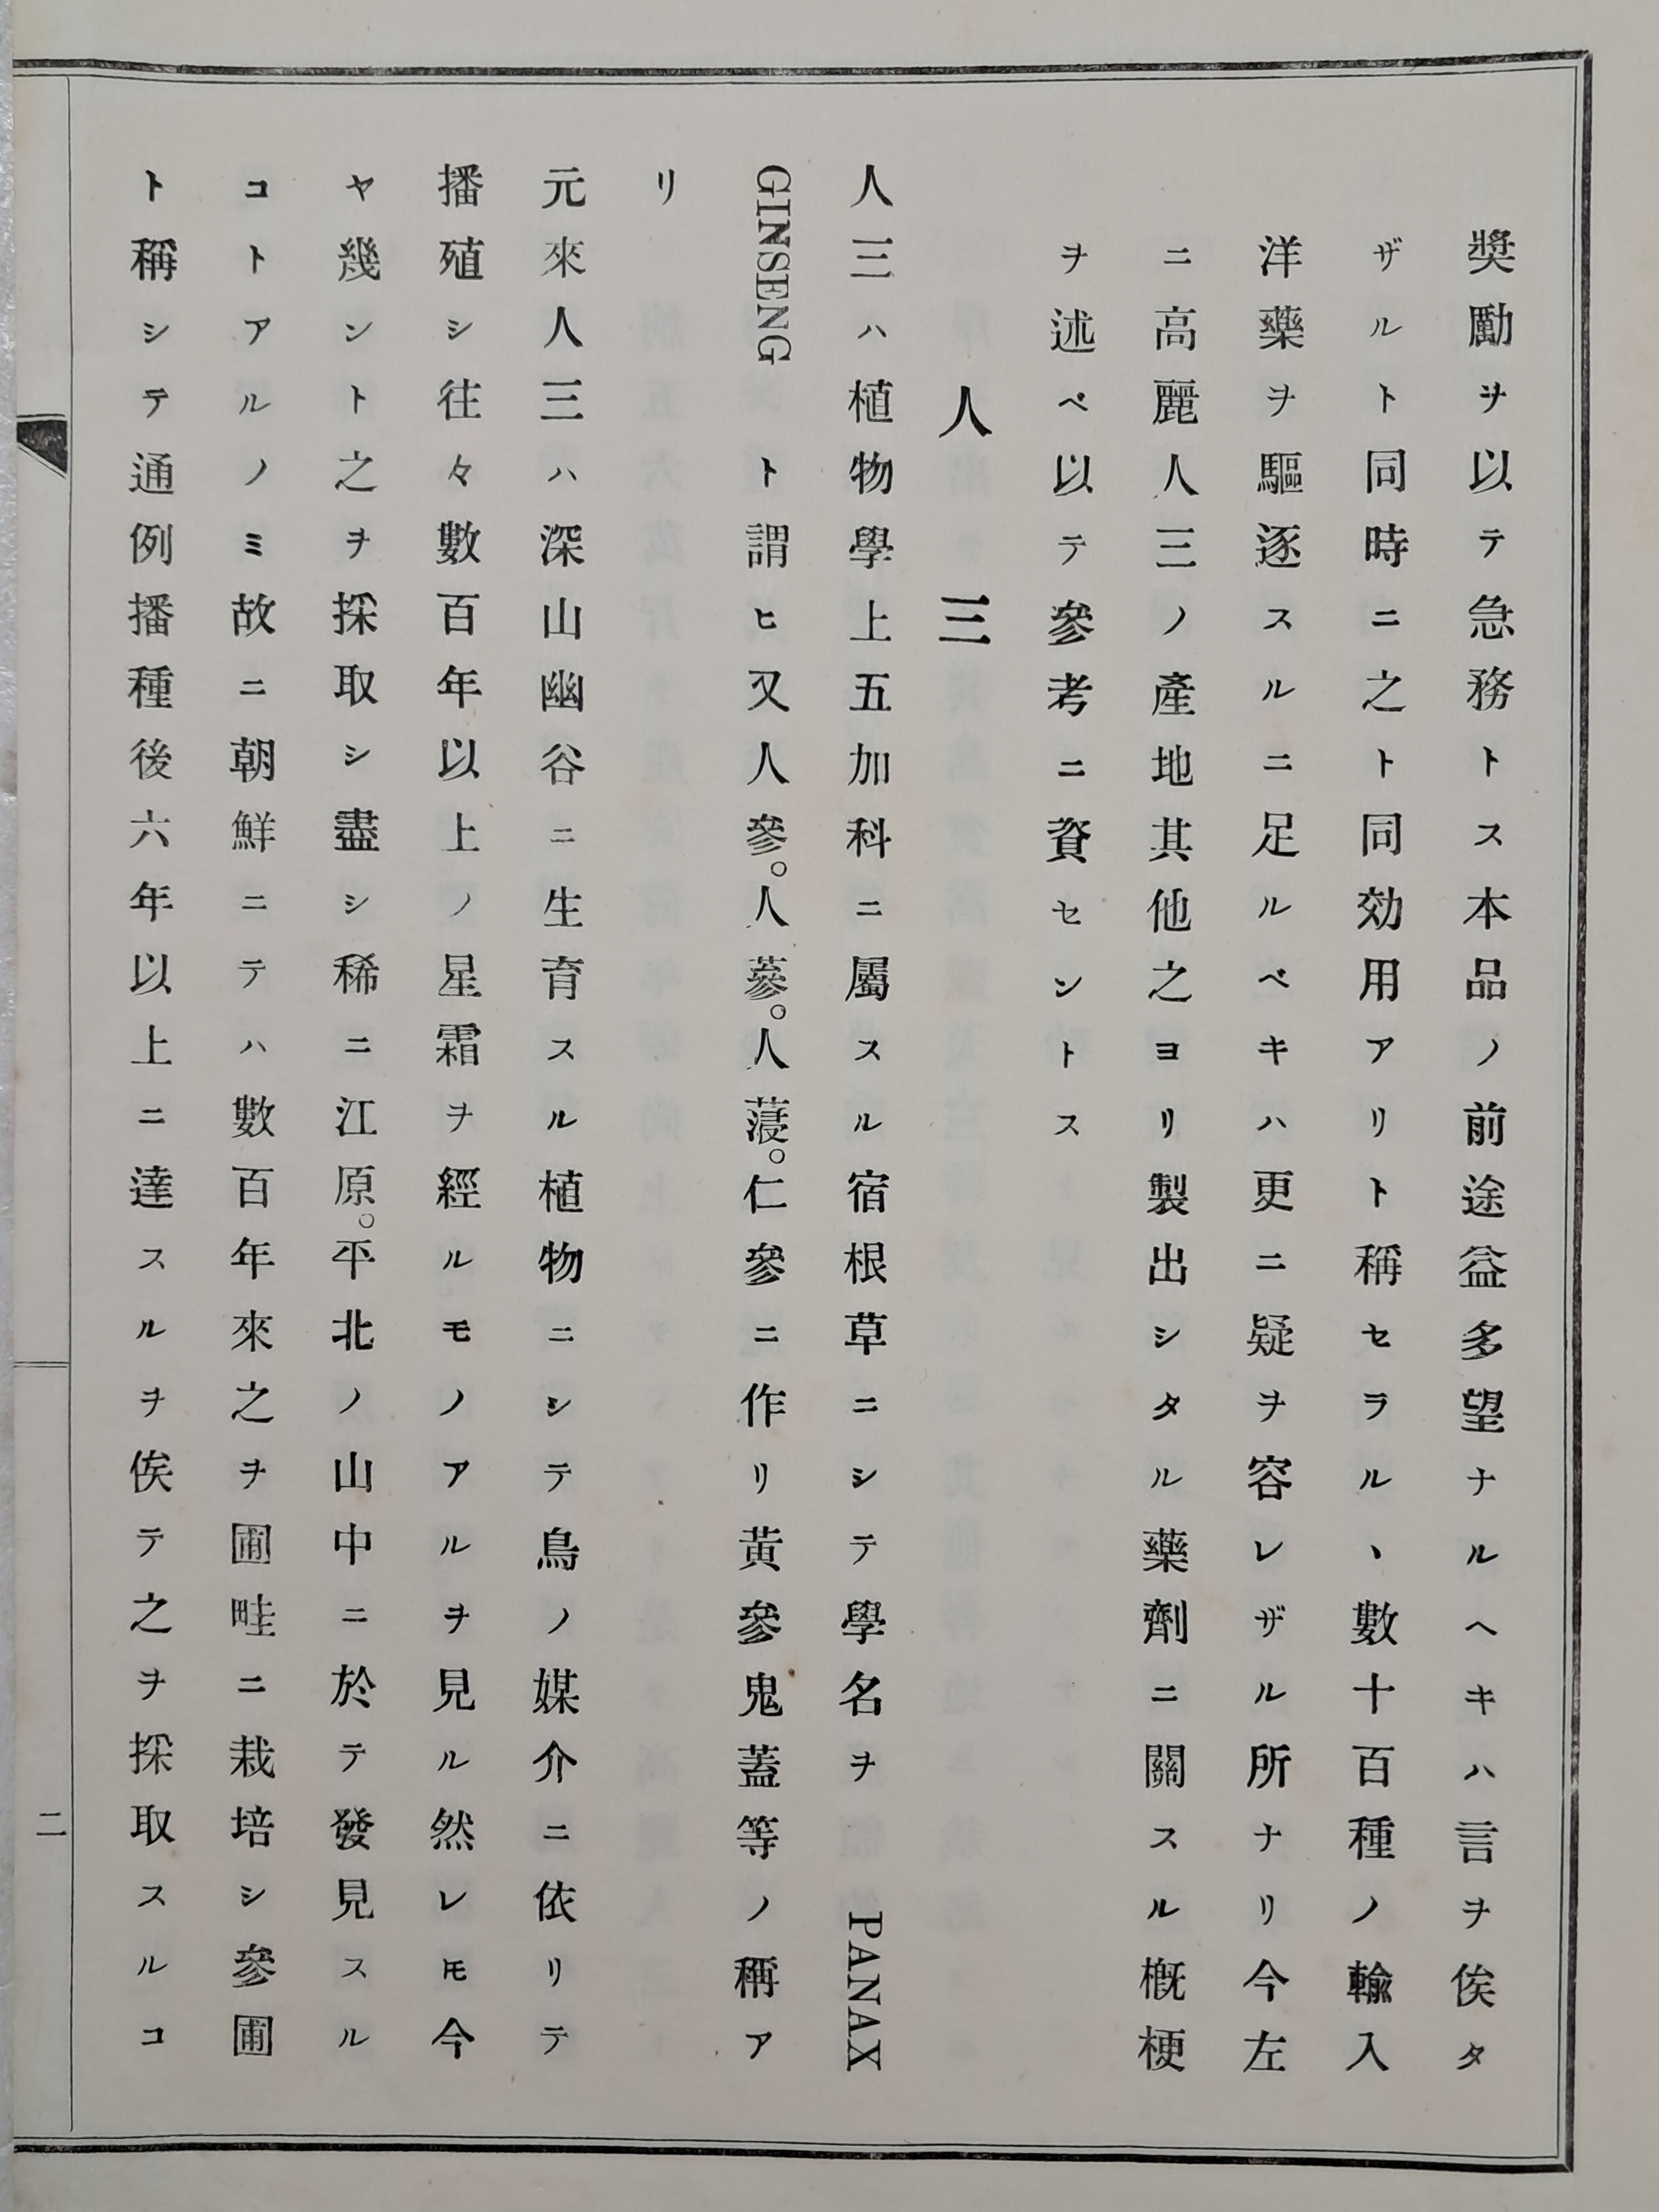 奬勵ヲ以テ急務トス本品ノ前途益多望ナルヘキハ言ヲ俟タ
ザルト同時ニ之ト同効用アリト稱セラル、數十百種ノ輸入
洋藥ヲ驅逐スルニ足ルベキハ更ニ疑ヲ容レザル所ナリ今左
ニ高麗人三ノ產地其他之ヨリ製出シタル藥劑ニ關スル槪梗
ヲ述ベ以テ參考ニ資セントス
人三
人三ハ植物學上五加科ニ屬スル宿根草ニシテ學名ヲ PANAX
GINSENG ト謂ヒ又人參。人蔘。人薓。仁參ニ作リ黃參鬼蓋等ノ稱ア
リ
元來人三ハ深山幽谷ニ生育スル植物ニシテ鳥ノ媒介ニ依リテ
播殖シ往々數百年以上ノ星霜ヲ經ルモノアルヲ見ル然レ𪜈今
ヤ幾ント之ヲ採取シ盡シ稀ニ江原。平北ノ山中ニ於テ發見スル
コトアルノミ故ニ朝鮮ニテハ數百年來之ヲ圃畦ニ栽培シ參圃
ト稱シテ通例播種後六年以上ニ達スルヲ俟テ之ヲ採取スルコ
二